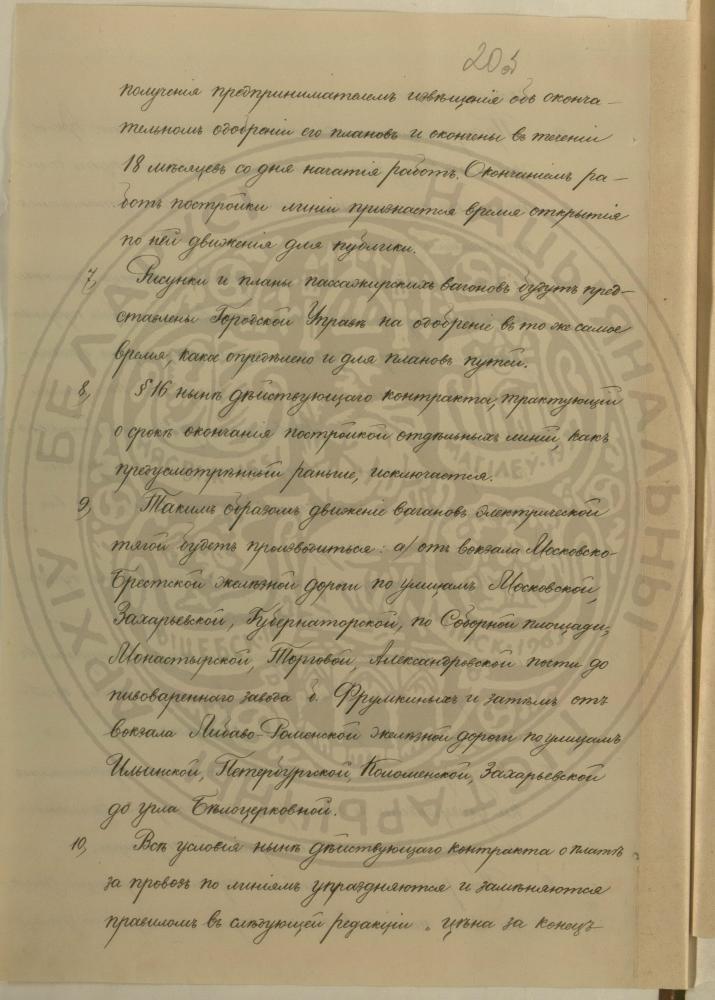 20 об
полученія предпринимателемъ извѣщенія объ оконча-
тельномъ одобреніи его плановъ и окончены въ теченіи
18 мѣсяцевъ со дня начатія работъ. Окончаніемъ ра-
ботъ постройки линіи признается время открытія
по ней движенія для публики.
7, Рисунки и планы пассажирскихъ вагоновъ будутъ пред-
ставлены Городской Управѣ на одобреніе въ то же самое
время, какое опредѣлено и для плановъ путей.
8, § 16 нынѣ дѣйствующаго контракта, трактующій
о срокѣ окончанія постройкой отдѣльныхъ линій, какъ
предусмотрѣнный раньше, исключается.
9, Такимъ образомъ движеніе вагоновъ электрической
тягой будетъ производиться: а/ отъ вокзала Московско-
Брестской желѣзной дороги по улицамъ Московской,
Захарьевской, Губернаторской, по Соборной площади,
Монастырской, Торговой, Александровской почти до
пивовареннаго завода б. Фрумкиныхъ и затѣмъ отъ
вокзала Либаво-Роменской желѣзной дороги по улицамъ
Ильинской, Петербургской, Коломенской, Захарьевской
до угла Бѣлоцерковной.
10, Всѣ условія нынѣ дѣйствующаго контракта о платѣ
за провозъ по линіямъ упраздняются и замѣняются
правиломъ въ слѣдующей редакціи „цѣна за конецъ